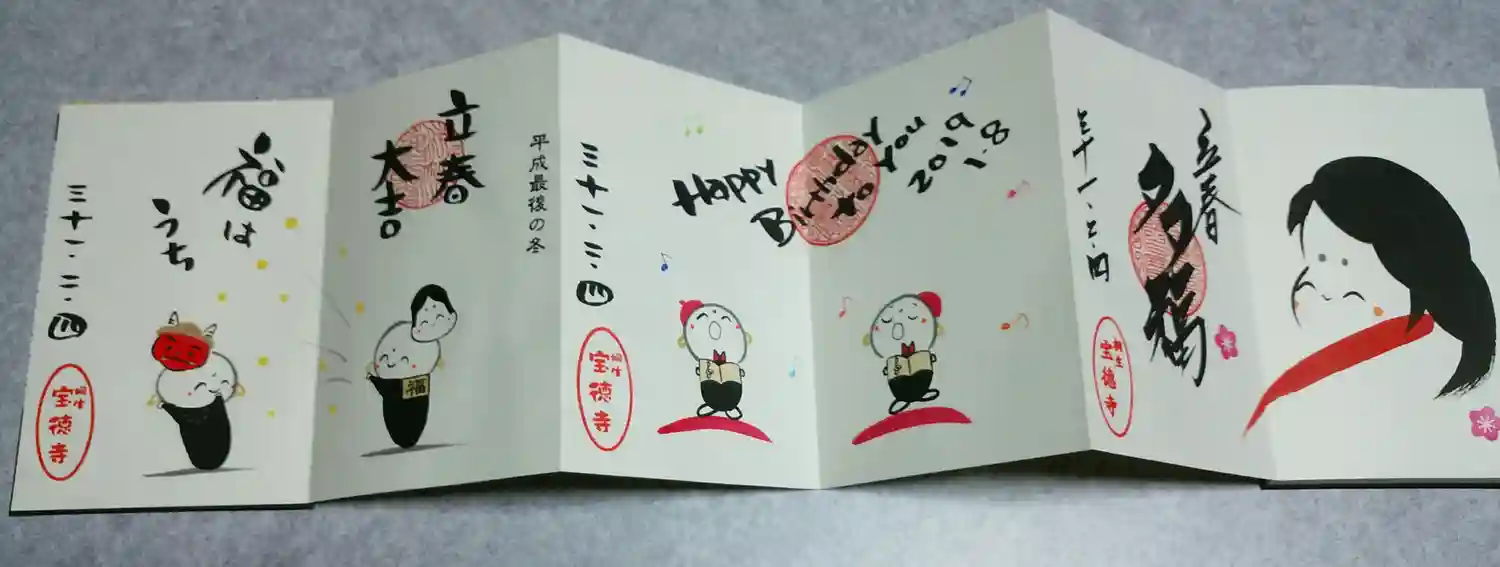 平成最後の冬
立春
大吉
福
福は
うち
三十一.二.四
桐生
宝徳寺
Happy
Birthday
to you
2019
1.8
三十一.二.四
桐生
宝徳寺
立春
多福
三十一.二.四
桐生
宝徳寺